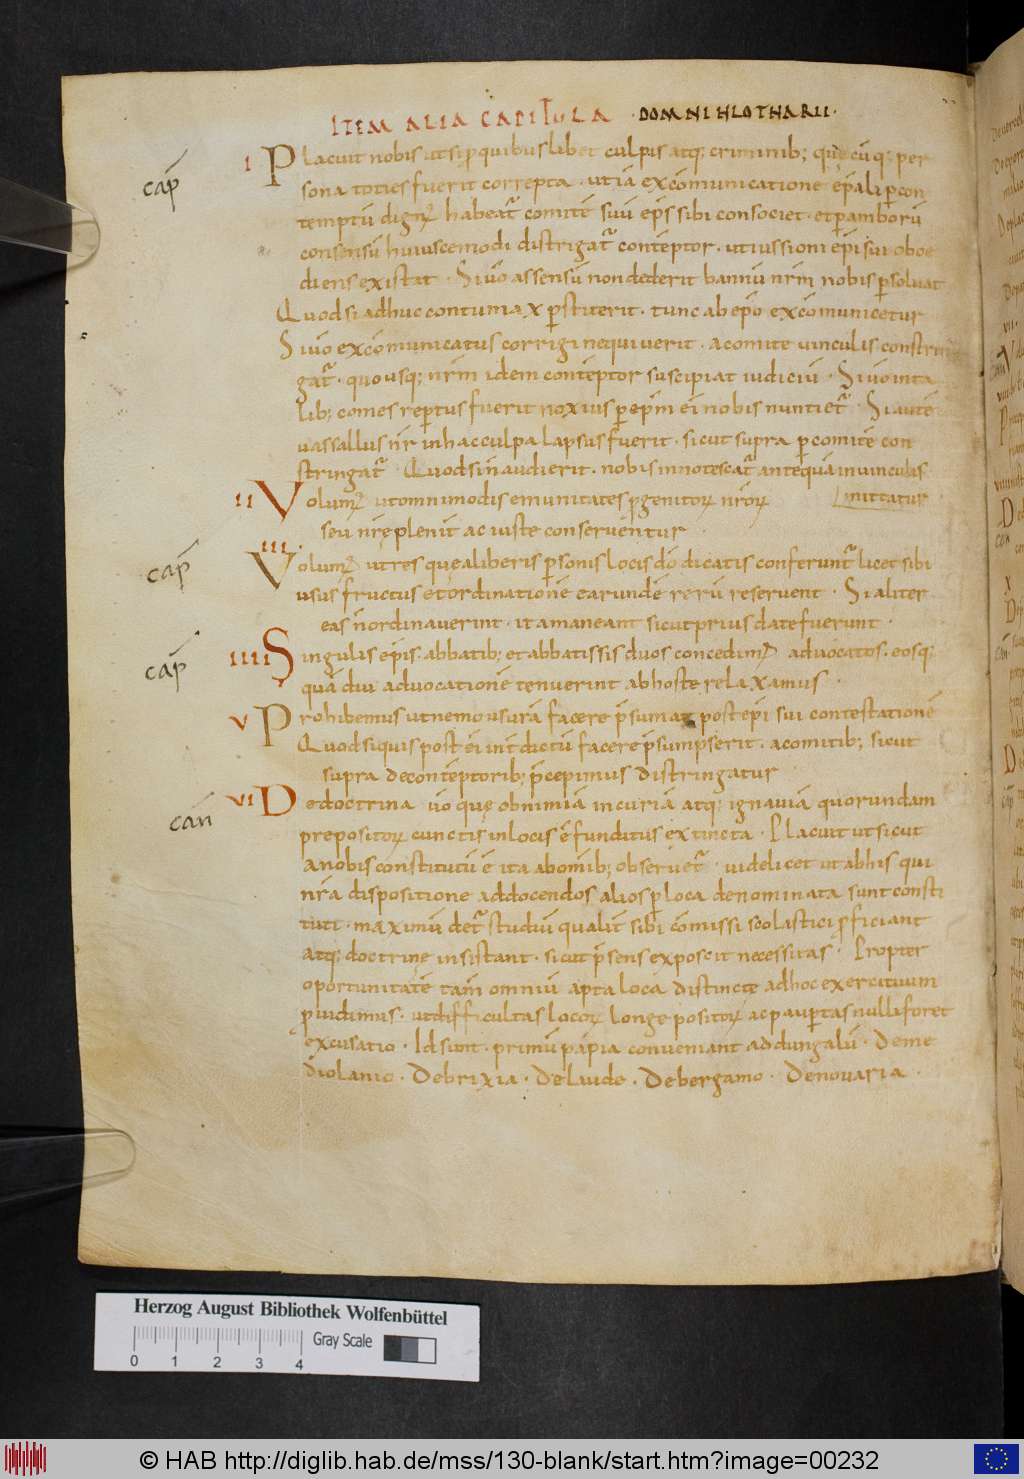 ITEM ALIA CAPITULA · DOMNI HLOTHARII ·
cap̄
I Placuit nobis ut si p̱ quibuslibet culpis atq; criminib; quęcūq; per
sona toties fuerit correpta · ut iā excōmunicatione ep̄ali p̱ con
temptū dignꝰ habeat᷑ comitē suū ep̄s sibi consociet · et p̱ amborū
consensū huiuscemodi distringat᷑ contēptor · ut iussioni ep̄i sui oboe
diens existat · Si ūo assensū non dederit bannū nr̄m nobis p̱soluat
Quod si adhuc contumax p̱stiterit · tunc ab ep̄o excōmunicetur
Si ūo excōmunicatus corrigi nequiverit · a comite vinculis constrin
gat᷑ · quousq; nr̄m idem contēptor suscipiat iudiciū · Si ūo in ta
lib; comes rep̱tus fuerit noxius p̱ ep̄m ei nobis nuntiet᷑ · Si autē
uassallus nr̄ in hac culpa lapsus fuerit · sicut supra p̱ comitē con
stringat᷑ · Quod si n̄ audierit · nobis innotescat᷑ antequā in uinculis
mittatur
II Volumꝰ ut omnimodis emunitates p̱genitoꝝ nr̄oꝝ
seu nr̄ę pleniť ac iuste conserventur
cap̄
III · Volumꝰ ut res quę a liberis p̱sonis locis dō dicatis conferunt᷑ licet sibi
usus fructus et ordinationē earundē rerū reservent · Si aliter
eas n̄ ordinaverint · ita maneant sicut prius datę fuerunt ·
cap̄
IIII Singulis ep̄is · abbatib; et abbatissis duos concedimꝰ advocatos · eosq;
quādiu advocationē tenuerint ab hoste relaxamus ·
V Prohibemus ut nemo usurā facere p̄sumat post ep̄i sui contestationē
Quod si quis post ei inťdictū facere p̄sumpserit · a comitib; sicut
supra de contēptorib; p̄cepimus distringatur
can̄
VI De doctrina ūo quę ob nimiā incuriā atq; ignaviā quorundam
prepositoꝝ cunctis in locis ē funditus extincta · Placuit ut sicut
a nobis constitutū ē ita ab om̄ib; observet᷑ · videlicet ut ab his qui
nr̄a dispositione ad docendos alios p̱ loca denominata sunt consti
tuti · maximū det᷑ studiū qualiť sibi cōmissi scolastici p̱ficiant
atq; doctrinę insistant · sicut p̄sens exposcit necessitas · Propter
oportunitatē tam̄ omniū apta loca distincte ad hoc exercitium
p̱uidimus · ut difficultas locoꝝ longe positoꝝ ac paup̱tas nulli foret
excusatio · Id sunt · primū papia conveniant ad dungalū · De me
diolanio · De brixia · De laude · De bergamo · De novaria ·
Herzog August Bibliothek Wolfenbüttel
Gray Scale
0 1 2 3 4
© HAB http://diglib.hab.de/mss/130-blank/start.htm?image=00232